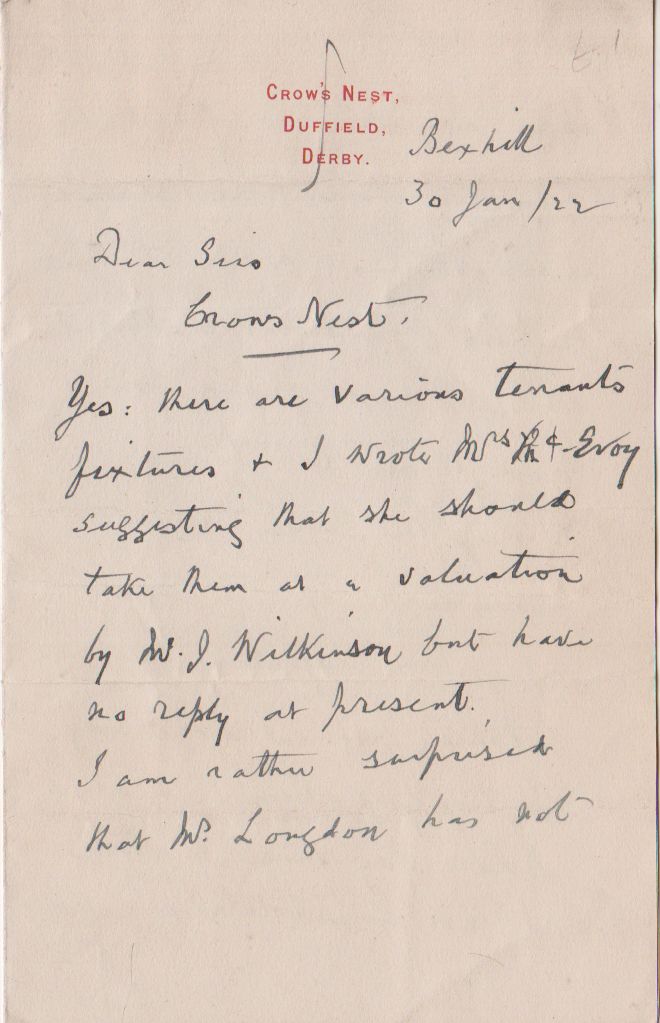 CROW'S NEST,
DUFFIELD,
DERBY.
Bexhill
30 Jan /22
Dear Sirs
Crows Nest.
Yes: there are various tenants
fixtures & I wrote Mrs McEvoy
suggesting that she should
take them at a valuation
by Mr. J. Wilkinson but have
no reply at present.
I am rather surprised
that Mr. Longdon has not